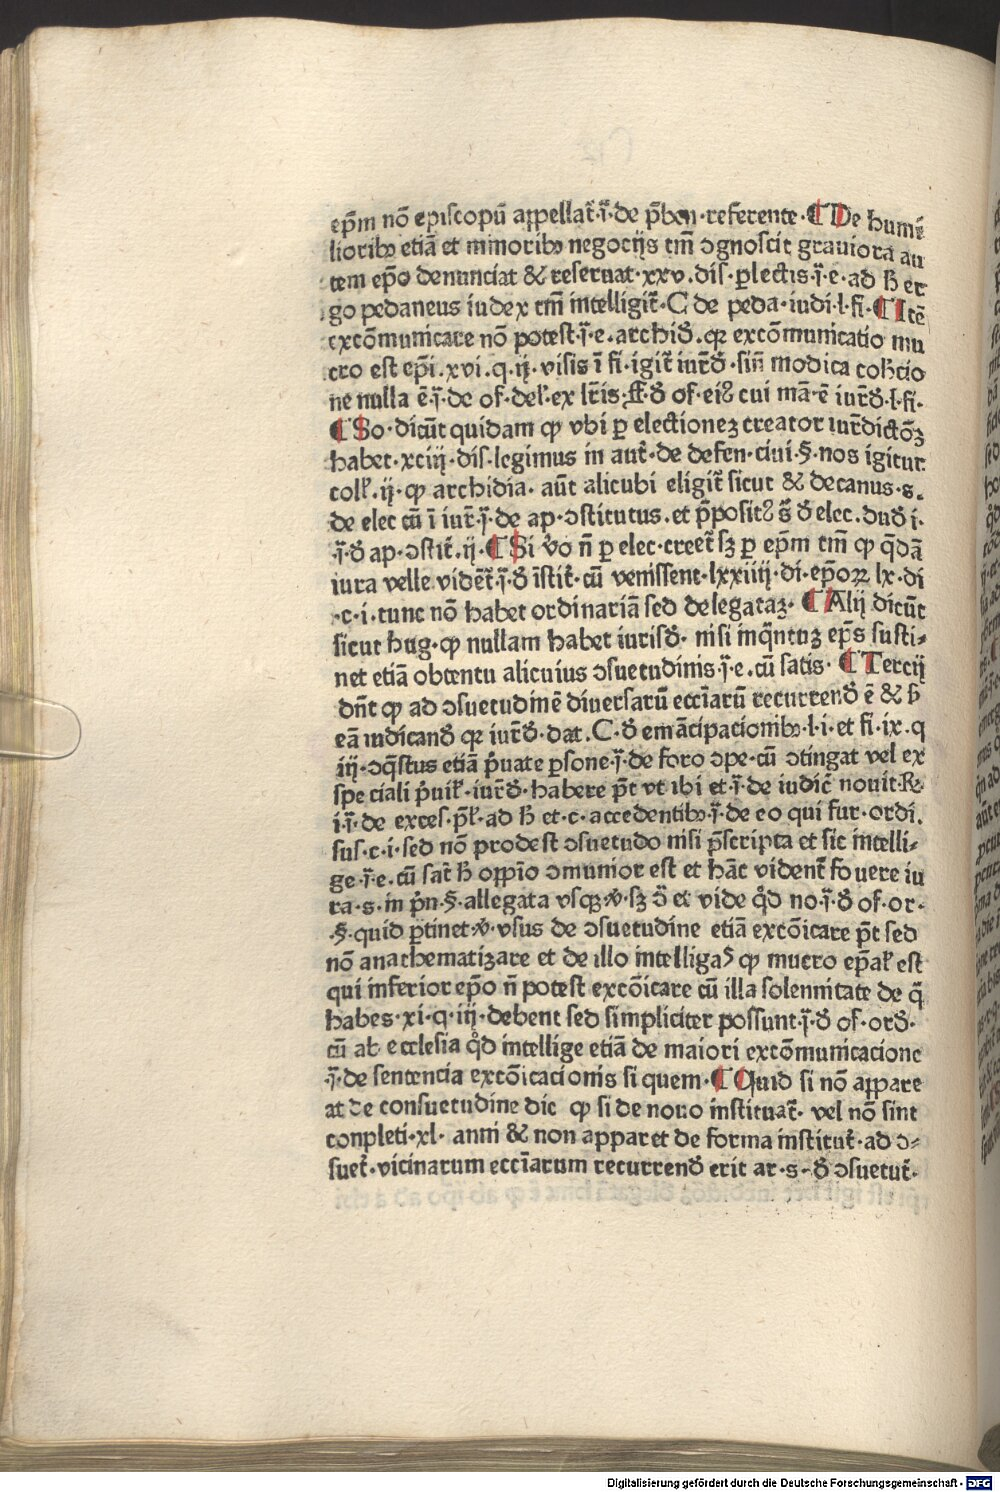 ep̄m nō episcopū appellat᷑·ī·de p̄ben·referente·¶ De humi
lioribꝫ etiā et minoribꝫ negocijs tm̄ ↄgnoscit graviora au
tem ep̄o denunciat & reseruat·xxv·dis·ꝑlectis·ī·e·ad h̄ er
go pedaneus iudex tm̄ intelligit᷑·C de peda·iudi·l·fi·¶ Itē
excōmunicare nō potest·ī·e·archid̄·qꝛ excōmunicatio mu
cro est ep̄i·xvi·q·ij·visis ī fi·igit᷑ iur̄d̄·sin̄ modica coh̄cio
ne nulla ē·ī·de of·del̄·ex lr̄is·ff·d̄ of·eiꝰ cui mā·ē iur̄d̄·l·fi·
¶ So·dicūt quidam ꝙ vbi ꝑ electionez creator iur̄dictōꝫ
habet·xciij·dis·legimus in aut̄·de defen·ciui·§·nos igitur
coll̄·ij·ꝙ archidia·aūt alicubi eligit᷑ sicut & decanus·s·
de elec cū ī iur̄·ī·de ap·ↄstitutus·et p̄positꝰ s̄ d̄ elec·dud̄ i·
·ī·d̄ ap·ↄstit̄·ij·¶ Si v̊o n̄ ꝑ elec·creet᷑ sꝫ ꝑ ep̄m tm̄ ꝙ q̄dā
iura velle vidēt᷑·ī·d̄ īstit̄·cū venissent·lxxiiij·di·ep̄oꝝ lx·di
·c·i·tunc nō habet ordinariā sed delegataꝫ·¶ Alij dicūt
sicut hug·ꝙ nullam habet iurisd̄·nisi inq̄ntuꝫ ep̄s susti⸗
net etiā obtentu alicuius ↄsuetudinis·ī·e·cū satis·¶ Tercij
dn̄t ꝙ ad ↄsuetudinē diuersarū ecc̄iarū recurrend̄ ē & h̄
eā iudicand̄ qꝛ iur̄d̄·dat·C·d̄ emācipacionibꝫ·l·i·et fi·ix·q
iij·ↄq̄stus etiā p̄uate ꝑsone·ī·de foro ↄpe·cū ↄtingat vel ex
speciali p̄uil̄·iur̄d̄·habere p̄t vt ibi et·ī·de iudic̄ nouit·R·
i·ī·de exces·p̄l̄·ad h̄ et·c·accedentibꝫ·ī·de eo qui fur·ordi·
sus·c·i·sed nō prodest ↄsuetudo nisi p̄scripta et sic intelli⸗
ge·ī·e·cū sat̄ h̄ oppīo ↄmunior est et hāc vident᷑ fouere iu
ra·s·in p̄n·§·allegata vsqꝫ·v̄·sꝫ ↄ̄ et vide qd̊ no·ī·d̄ of·or·
·§·quid ꝑtinet·v̄·vsus de ↄsuetudine etiā excōicare p̄t sed
nō anathematizare et de illo intelligas ꝙ mucro ep̄al̄ est
qui inferior ep̄o n̄ potest excōicare cū illa solennitate de q̄
habes·xi·q·iij·debent sed simpliciter possunt·ī·d̄ of·ord̄·
cū ab ecclesia qd̊ intellige etiā de maiori excōmunicacione
·ī·de sentencia excōicacionis si quem·¶ Quid si nō appare
at de consuetudine dic ꝙ si de nouo instituat᷑·vel nō sint
conpleti·xl·anni & non apparet de forma institut̄·ad ↄ⸗
suet̄·vicinarum ecc̄iarum recurrend̄ erit ar·s·d̄ ↄsuetut̄·
Digitalisierung gefördert durch die Deutsche Forschungsgemeinschaft - DFG